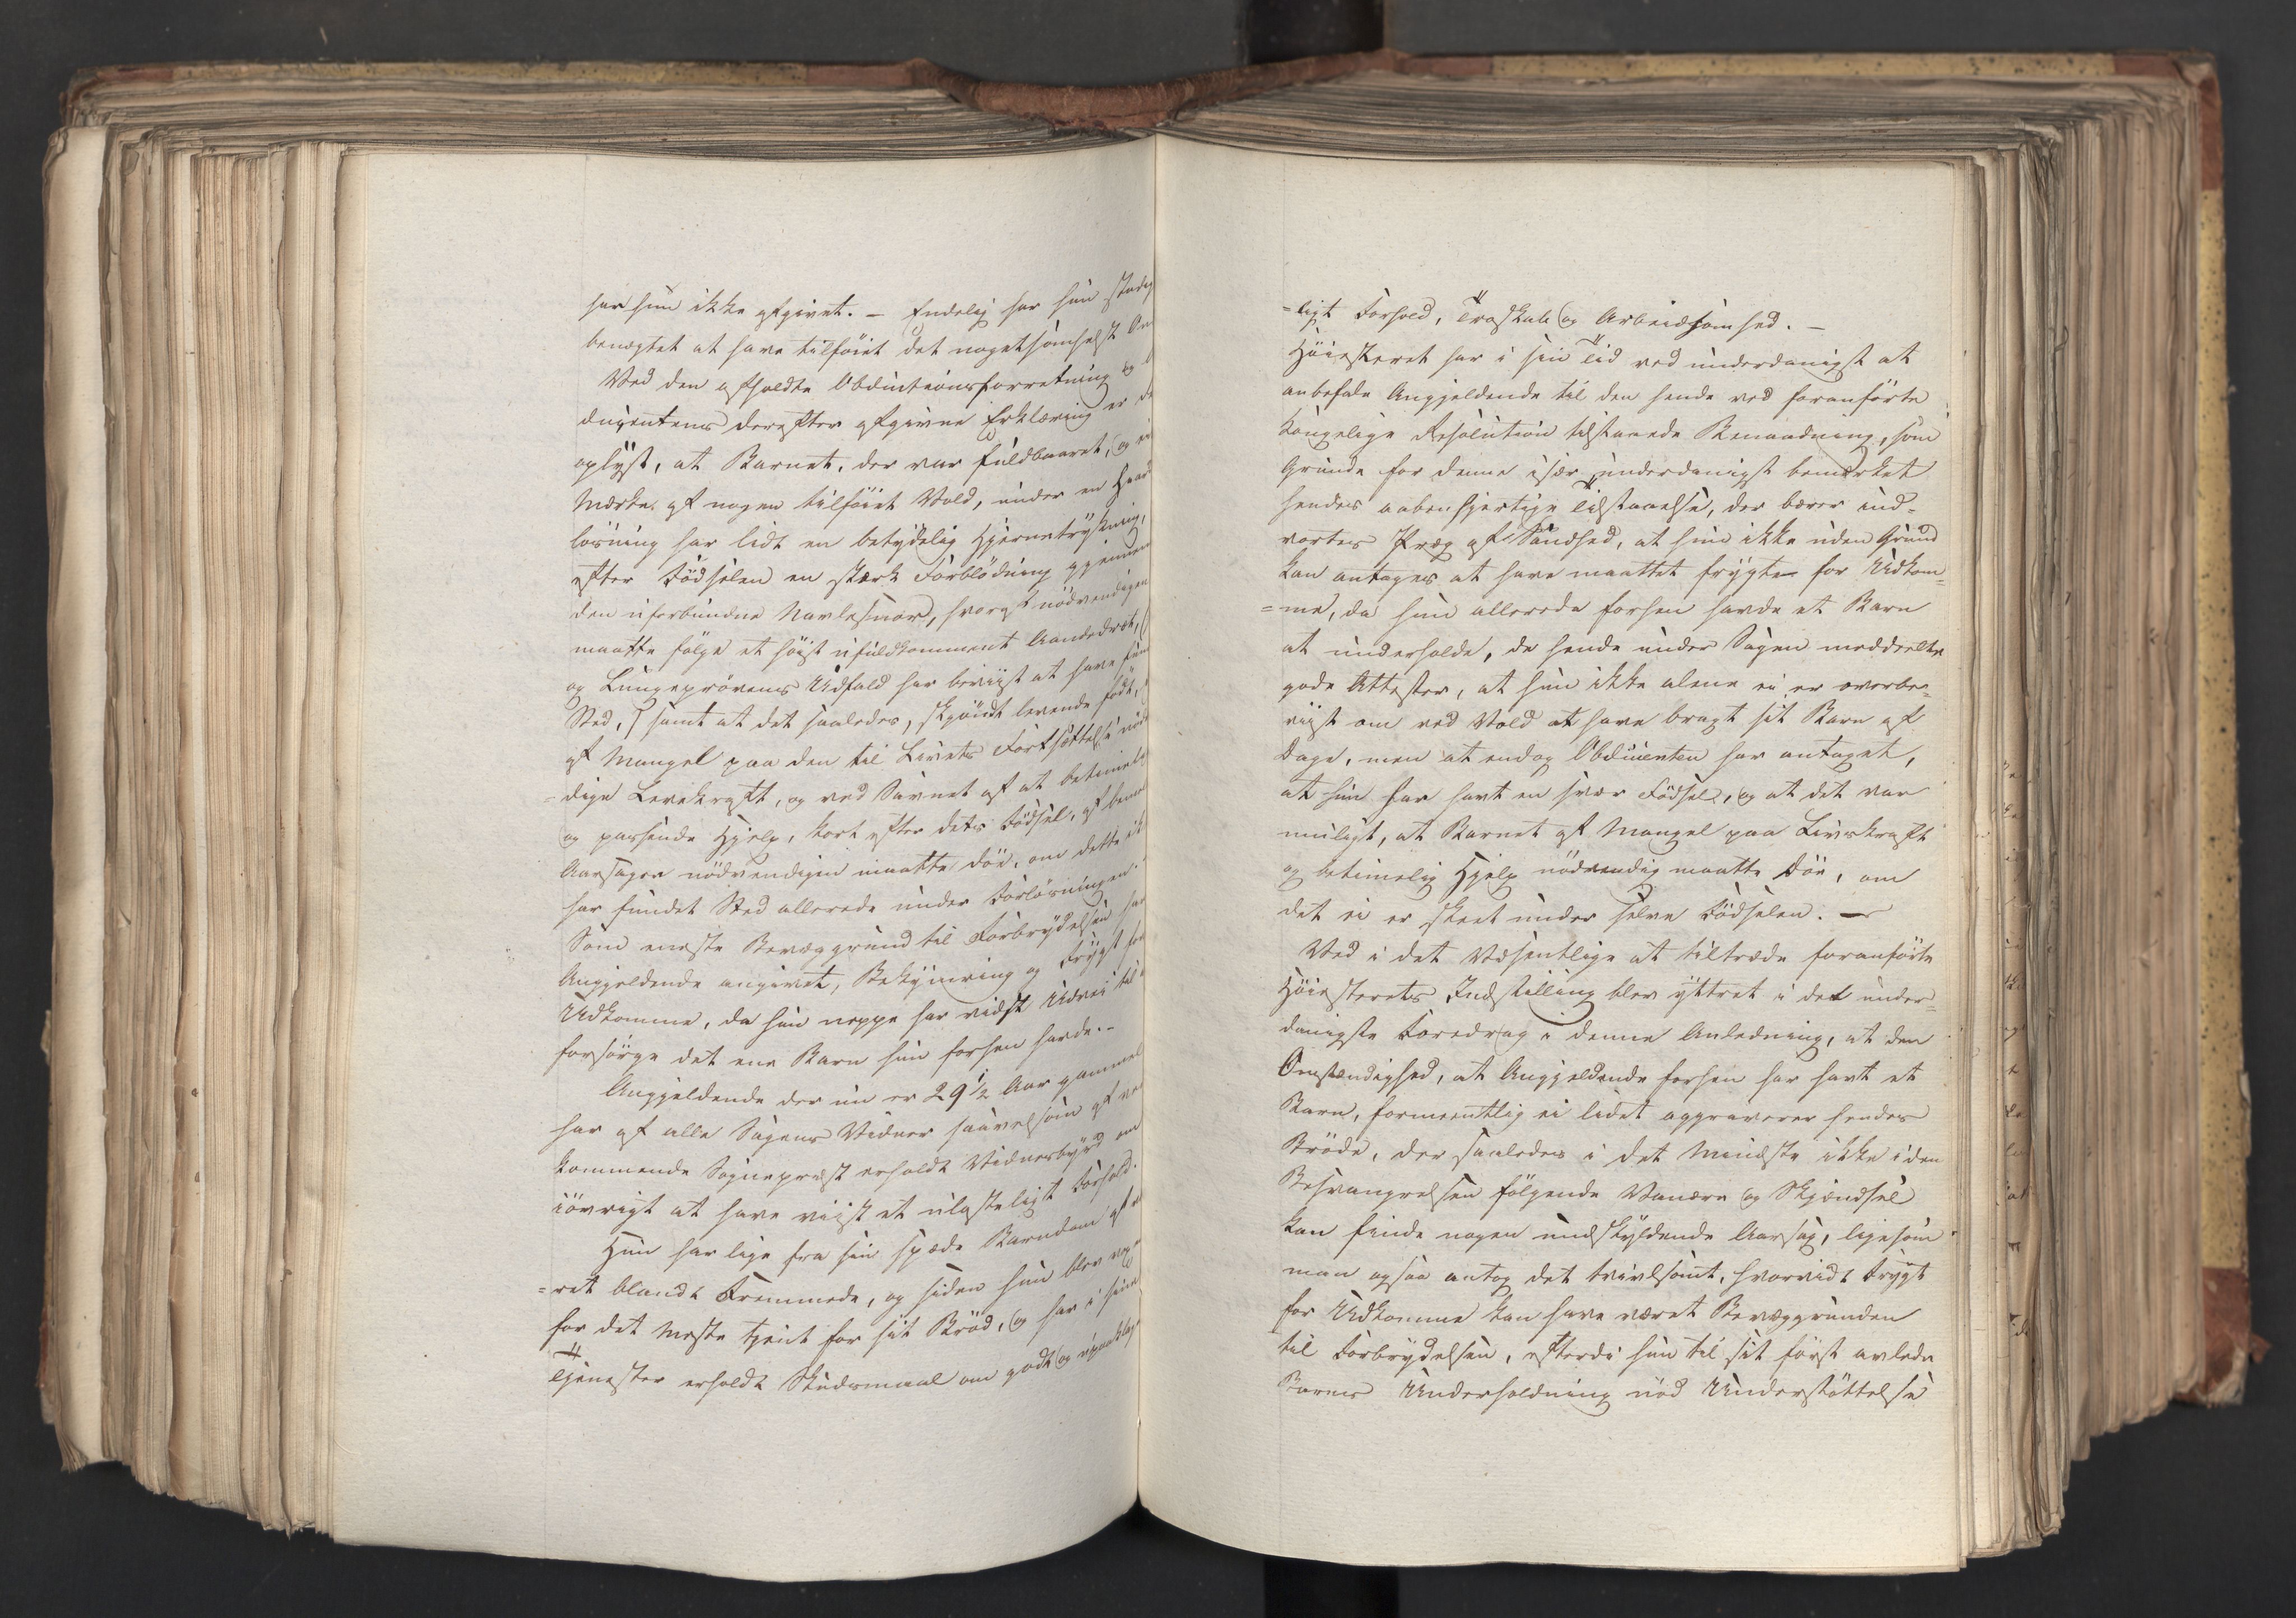 har hun ikke afgivet. – Endelig har hun stadig
benægtet at have tilføiet det nogetsomhelst On
Ved den afholdte Obductionsforretning og
ducentens derefter afgivne Erklæring er de
oplyst, at Barnet, der var fuldbaaret, og ei
Mærke af nogen tilføiet Vold, under en haard
løsning har lidt en betydelig Hjernetrykning,
efter Fødselen en stærk Forblødning gjennem
den uforbundne Navlesnor, hvoraf nødvendigen
maatte følge et høist ufuldkomment Aandedræt,
og Lungeprøvens Udfald har beviist at have fun
Sted, samt at det saaledes, skjøndt levende født,
af Mangel paa den til Livets Fortsættelse nød
=dige Levekraft, og ved Savnet af at betimelig
og passende Hjelp, kort efter dets Fødsel, af
Aarsager nødvendigen maatte døe, om dette ik
har fundet Sted allerede under Forløsningen.
Som eneste Bevæggrund til Forbrydelsen har
Angjeldende angivet, Bekymring og Frygt for
Udkomme, da hun neppe har vidst Udvei til
forsørge det ene Barn hun forhen havde. –
Angjeldende der nu er 29½ Aar gammel
har af alle Sagens Vidner saavelsom af ved
kommende Sognepræst erholdt Vidnesbyrd om
iøvrigt at have viist et ulasteligt Forhold.
Hun har lige fra sin spæde Barndom af
=ret blandt Fremmede, og siden hun blev vox
for det meste tjent for sit Brød, og har i sine
Tjenester erholdt Skudsmaal om godt og upaaklage
=ligt Forhold, Troskab og Arbeidsomhed. –
Høiesteret har i sin Tid ved underdanigst at
anbefale Angjeldende til den hende ved foranførte
Kongelige Resolution tilstaaede Benaadning, som
Grunde for denne især underdanigst bemærket
hendes aabenhjertige Tilstaaelse, der bærer ind=
vortes Præg af Sandhed, at hun ikke uden Grund
kan antages at have maattet frygte for Udkom=
=me, da hun allerede forhen havde et Barn
at underholde, de hende under Sagen meddeelte
gode Attester, at hun ikke alene ei er overbe=
viist om ved Vold at have bragt sit Barn af
Dage, men at endog Obducenten har antaget,
at hun har havt en svær Fødsel, og at det var
muligt, at Barnet af Mangel paa Livskraft
og betimelig Hjelp nødvendig maatte døe, om
det ei er skeet under selve Fødselen. –
Ved i det Væsentlige at tiltræde foranførte
Høiesterets Indstilling blev yttret i det under=
danigste Foredrag i denne Anledning, at den
Omstændighed, at Angjeldende forhen har havt et
Barn, formeentlig ei lidet aggraverer hendes
Brøde, der saaledes i det Mindste ikke i den
Besvangrelsen følgende Vanære og Skjændsel
kan finde nogen undskyldende Aarsag, ligesom
man ogsaa antog det tvivlsomt, hvorvidt Frygt
for Udkomme kan have været Bevæggrunden
til Forbrydelsen, efterdi hun til sit først avlede
Barns Underholdning nød Understøttelse